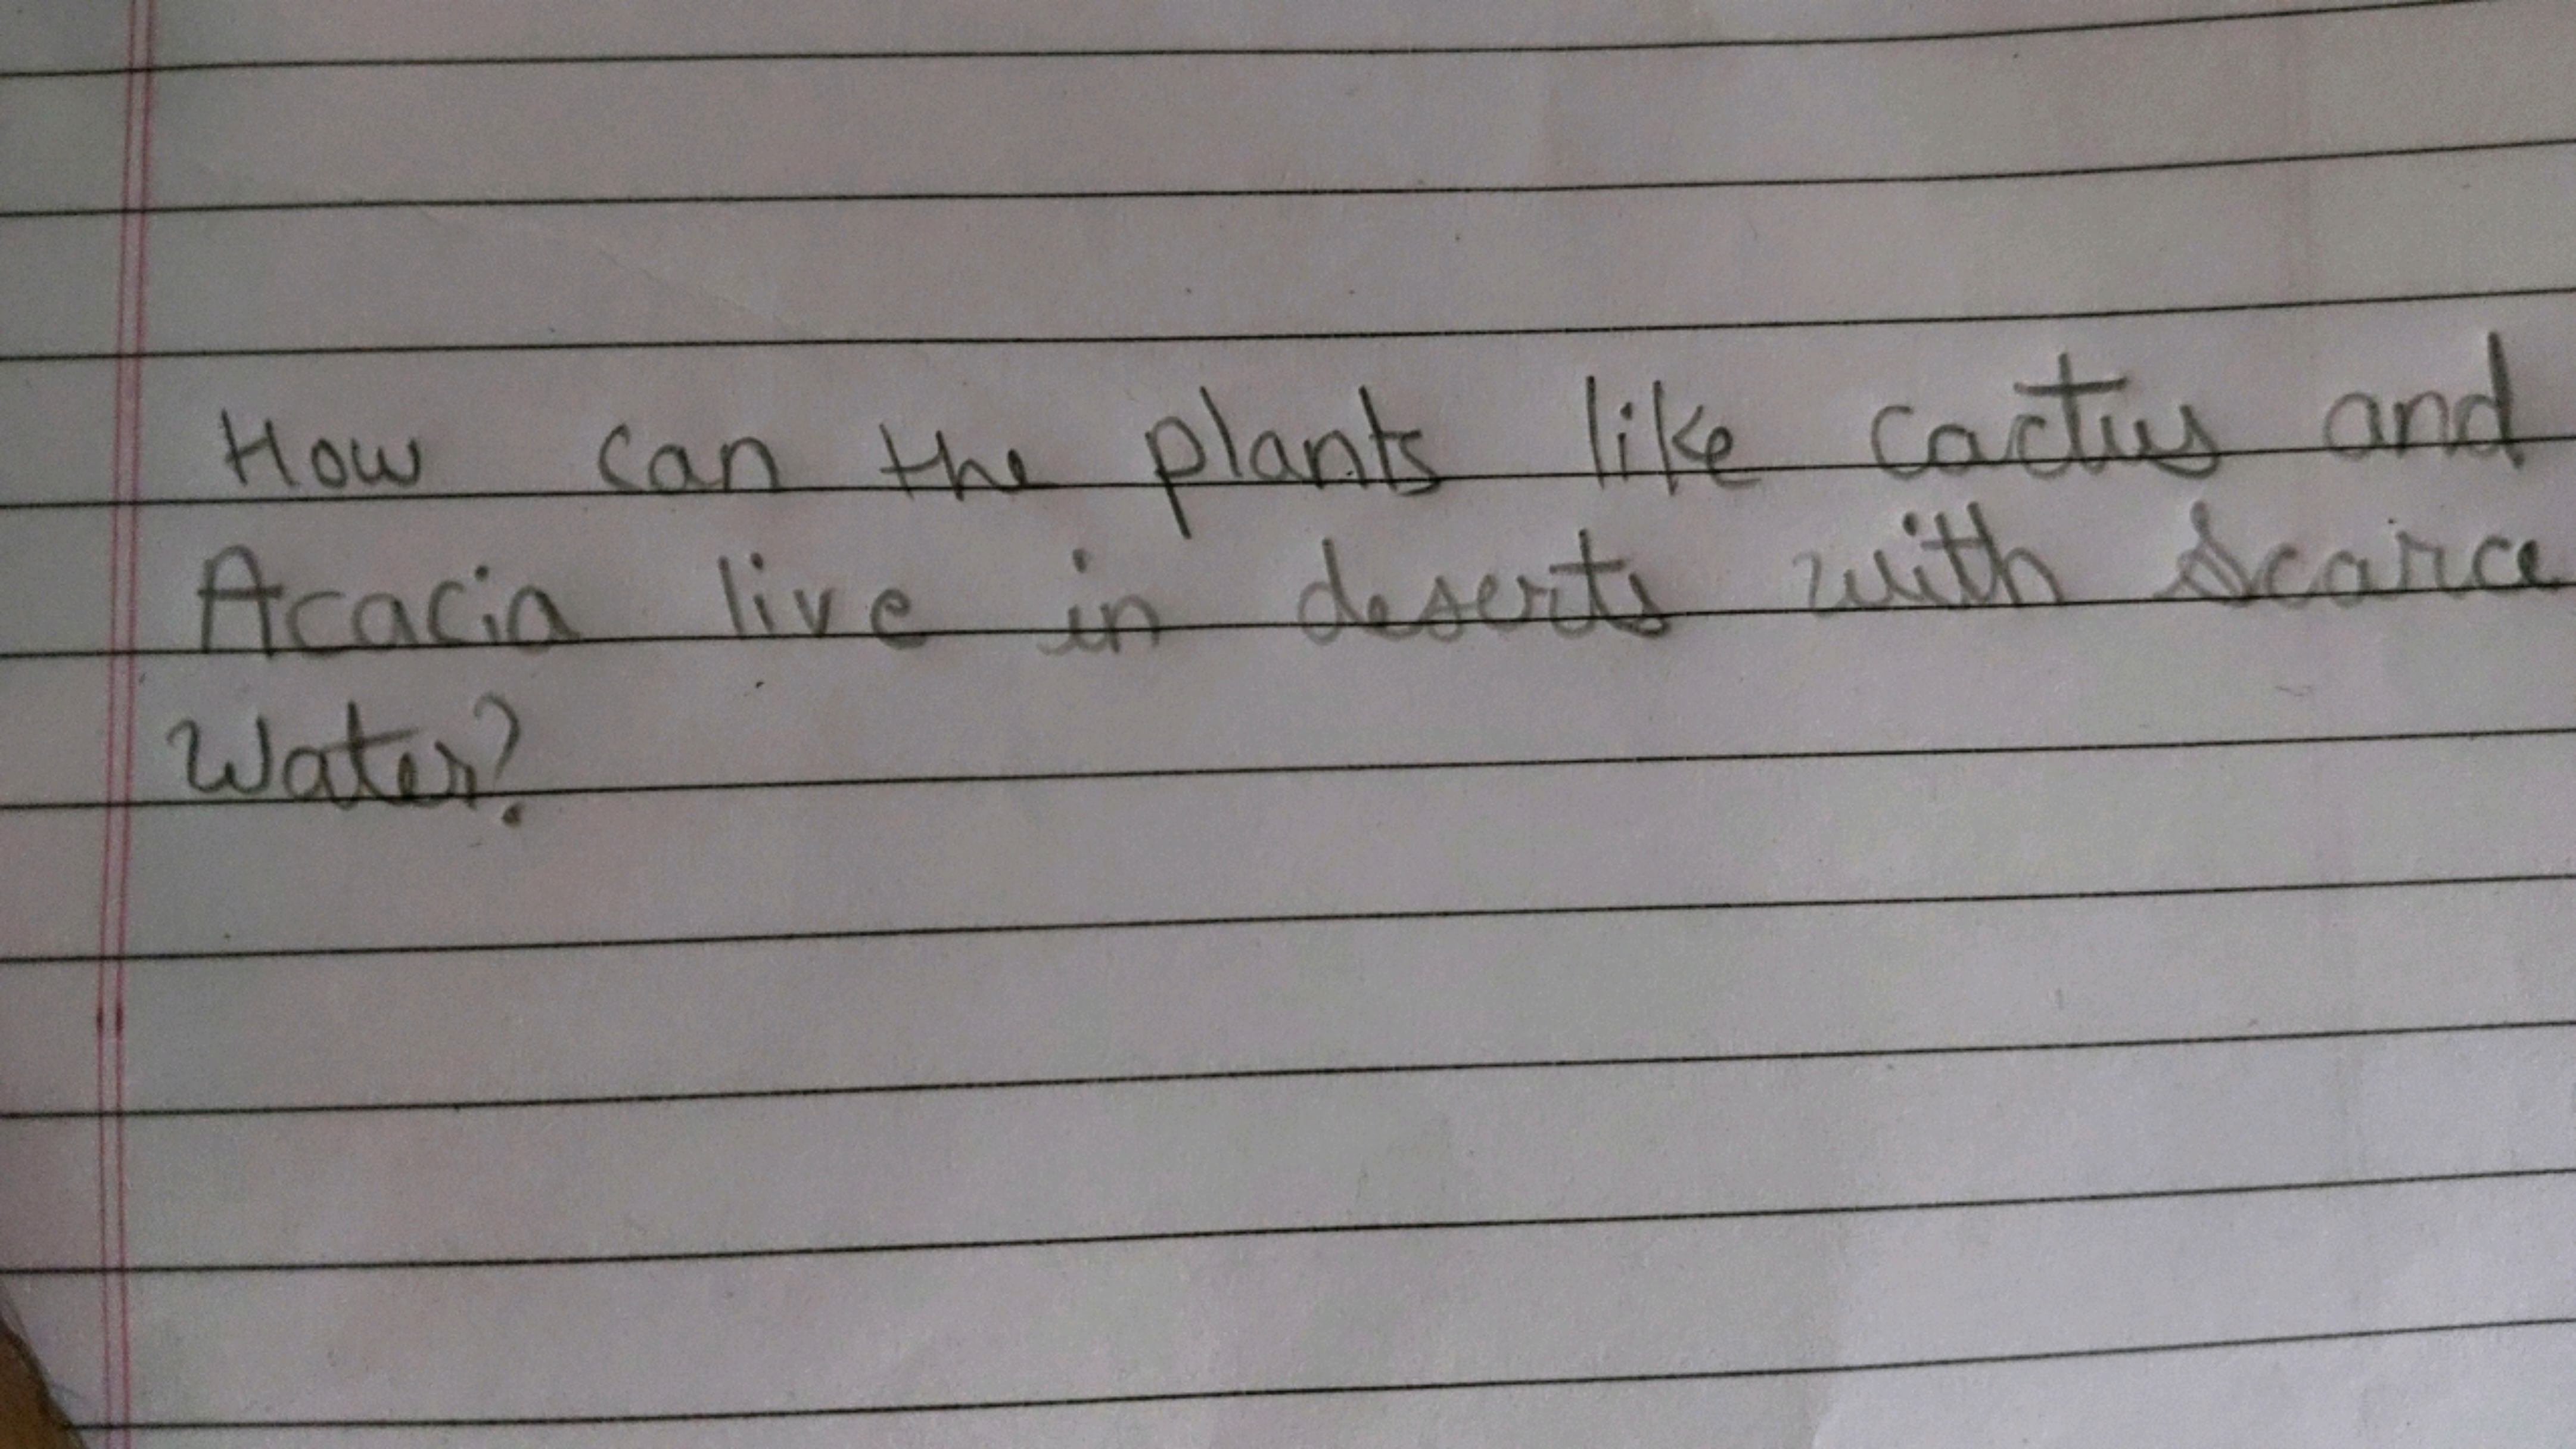 How can the plants like cactus and
Acacia live in deserts with scarce
Water?